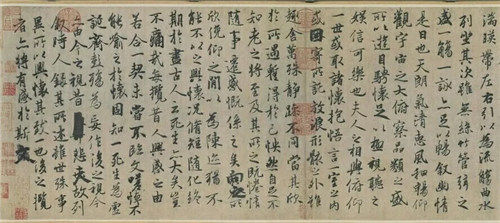 湍暎帶左右引以為流觴曲水
列坐其次雖無絲竹管弦之
盛一觴一詠亦足以暢敘幽情
是日也天朗氣清惠風和暢仰
觀宇宙之大俯察品類之盛
所以遊目騁懷足以極視聽之
娛信可樂也夫人之相與俯仰
一世或取諸懷抱悟言一室之內
或因寄所託放浪形骸之外雖
趣舍萬殊靜躁不同當其欣
於所遇暫得於己怏然自足不
知老之將至及其所之既惓情
隨事遷感慨係之矣向之所
欣俛仰之閒以為陳迹猶不
能不以之興懷況脩短隨化終
期於盡古人云死生亦大矣豈
不痛哉每攬昔人興感之由
若合一契未嘗不臨文嗟悼不
能喻之於懷固知一死生為虛
誕齊彭殤為妄作後之視今
亦由今之視昔悲夫故列
敘時人錄其所述雖世殊事
異所以興懷其致一也後之攬
者亦將有感於斯文